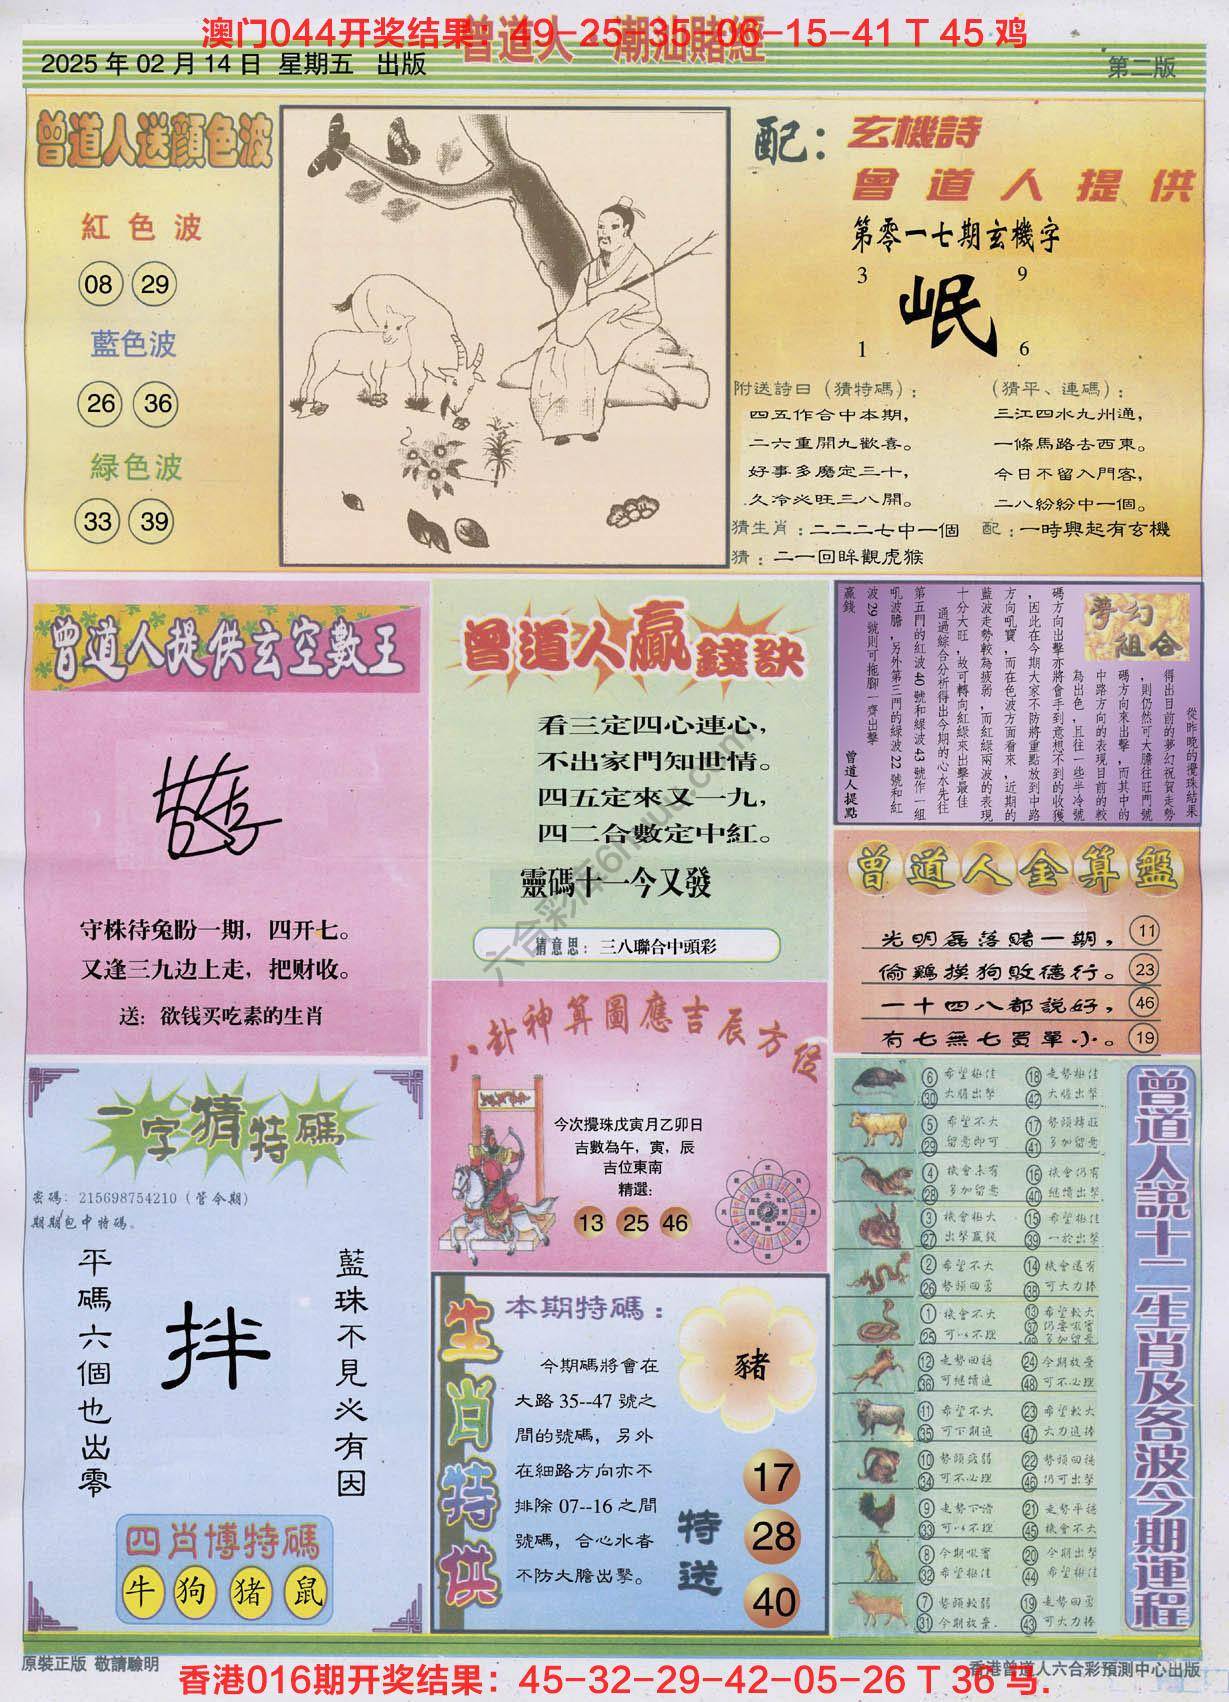 澳门044开奖结果：49-25-35-06-15-41 T 45 鸡
曾道人·潮汕賭經
2025 年 02 月 14 日 星期五 出版
第二版
曾道人送顏色波
紅色波
08 29
藍色波
26 36
緑色波
33 39
配：
玄機詩
曾道人提供
第零一七期玄機字
3 9
岷
1 6
附送詩日（猜特碼）：
四五作合中本期，
二六重開九歡喜。
好事多磨定三十，
久冷必旺三八開。
（猜平、連碼）：
三江四水九州通，
一條馬路去西東。
今日不留入門客，
二八紛紛中一個。
猜生肖：二二二七中一個
配：一時興起有玄機
猜：二一回眸觀虎猴
曾道人提供玄空數王
守株待兔盼一期，四开七。
又逢三九边上走，把财收。
送：欲钱买吃素的生肖
曾道人贏錢訣
看三定四心連心，
不出家門知世情。
四五定來又一九，
四二合數定中紅。
靈碼十一今又發
猜意思：三八聯合中頭彩
六合彩库6htuku.com
夢幻組合
從昨晚的攪珠結果
得出目前的夢幻祝賀走勢
，則仍然可大膽往旺門號
碼方向來出擊，而其中的
中路方向的表現目前的較
為出色，且往一些半冷號
碼方向出擊亦將會手到意想不到的收獲
，因此在今期大家不防將重點放到中路
方向吼寶，而在色波方面看來，近期的
藍波走勢較為疲弱，而紅綠兩波的表現
十分大旺，故可轉向紅綠來出擊最佳
通過綜合分析得出今期的心水先往
第五門的紅波40號和綠波43號作一組
吼波膽，另外第三門的綠波22號和紅
波29號則可拖腳一齊出擊
贏錢
曾道人提點
曾道人金算盤
光明磊落賭一期， 11
偷鷄摸狗敗德行。 23
一十四八都說好， 46
有七無七買單小。 19
八卦神算圖應吉辰方位
今次攪珠戊寅月乙卯日
吉數為午，寅，辰
吉位東南
精選：
13 25 46
一字猜特碼
密碼：215698754210（管今期）
期期包中特碼。
平碼六個也出零
拌
藍珠不見必有因
四肖博特碼
牛 狗 猪 鼠
生肖特供
本期特碼：
今期碼將會在
大路 35--47 號之
間的號碼，另外
在細路方向亦不
排除 07--16 之間
號碼，合心水者
不防大膽出擊。
豬
特送
17
28
40
曾道人說十二生肖及各波今期運程
⑥ 希望極佳 ⑱ 走勢極佳
㉚ 大膽出擊 ㊷ 大膽出擊
⑤ 希望不大 ⑰ 勢頭轉旺
㉙ 留意即可 ㊶ 多加留意
④ 機會未有 ⑯ 機會仍有
㉘ 多加留意 ㊵ 繼續出擊
③ 機會極大 ⑮ 希望極佳
㉗ 出擊贏錢 ㊴ 一於出擊
② 希望不大 ⑭ 機會還有
㉖ 勢頭回落 ㊳ 可大力捧
① 機會不大 ⑬ 希望較大
㉕ 可以不理 ㊲
⑫ 走勢回穩 ㉔ 今期放棄
㊱ 可繼續追 ㊽ 可不必理
⑪ 希望不大 ㉓ 希望較大
㉟ 可下期追 ㊼ 大力追捧
⑩ 勢頭疲弱 ㉒ 勢頭回穩
㉞ 可不必理 ㊻ 仍可出擊
⑨ 走勢下滑 ㉑ 走勢平穩
㉝ 可以不理 ㊺ 機會不大
⑧ 今期吼實 ⑳ 今期出擊
㉜ 希望極佳 ㊹ 希望極佳
⑦ 勢頭較弱 ⑲ 走勢回落
㉛ 今期放棄. ㊸ 可大力捧
原裝正版 敬請驗明
香港曾道人六合彩預測中心出版
香港016期开奖结果：45-32-29-42-05-26 T 36 马.